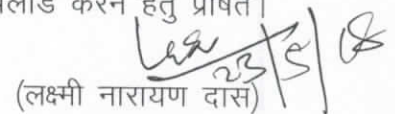 करने हेतु प्रेषित।
23/5/18
(लक्ष्मी नारायण दास)